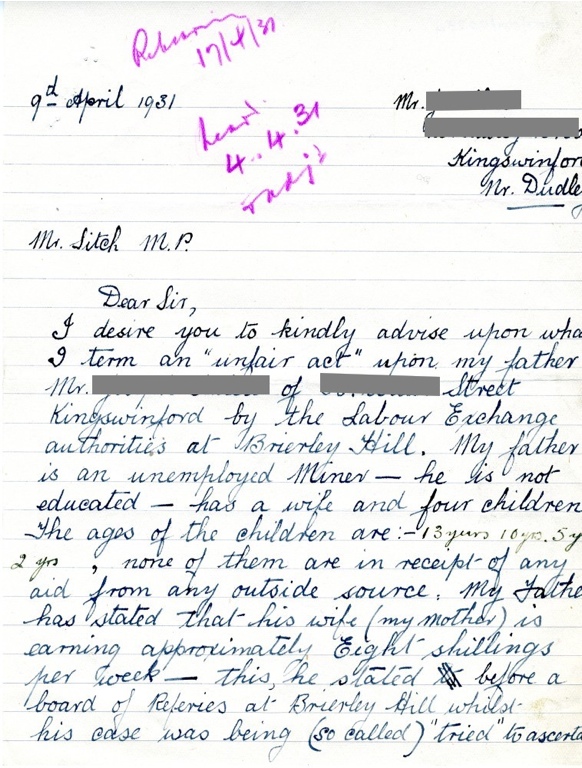 17/4/31
9th April 1931
Mr.
4.4.31
Kingswinfor
Nr. Dudle
Mr. Sitch M.P.
Dear Sir,
I desire you to kindly advise upon wha
I term an "unfair act" upon my father
Mr. of Street
Kingswinford by the Labour Exchange
authorities at Brierley Hill. My father
is an unemployed Miner — he is not
educated — has a wife and four children
The ages of the children are:- 13 yurs 10 yrs. 5 y
2 yrs , none of them are in receipt of any
aid from any outside source. My Fathe
has stated that his wife (my mother) is
earning approximately Eight shillings
per week — this, he stated before a
board of Referies at Brierley Hill whilst
his case was being (so called) "tried" to ascerta